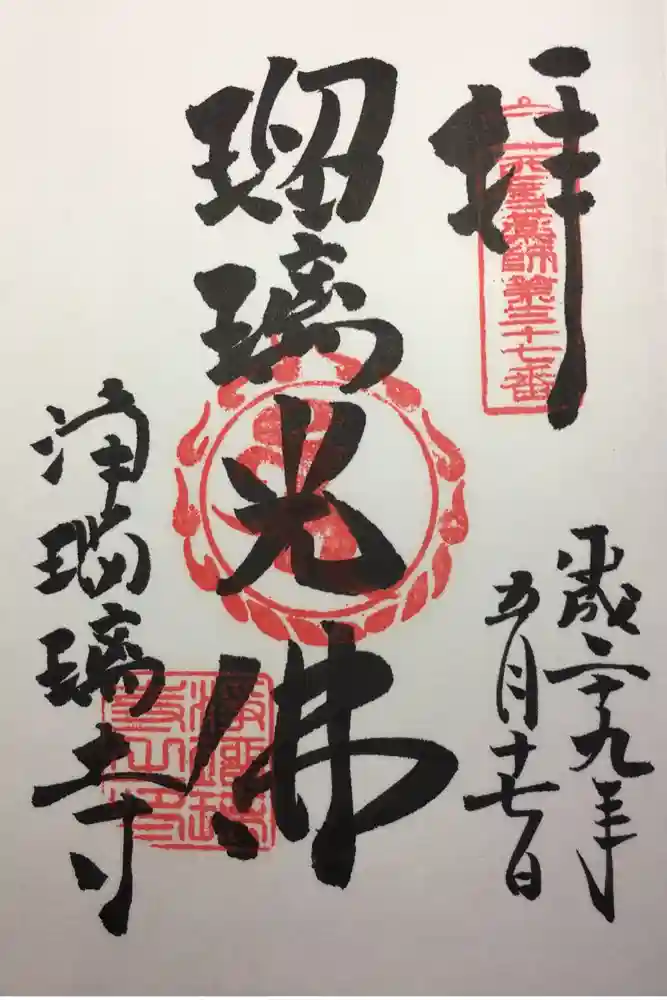 拝
薬師第三十七番
平成二十九年
五月十七日
瑠璃光佛
浄瑠璃寺